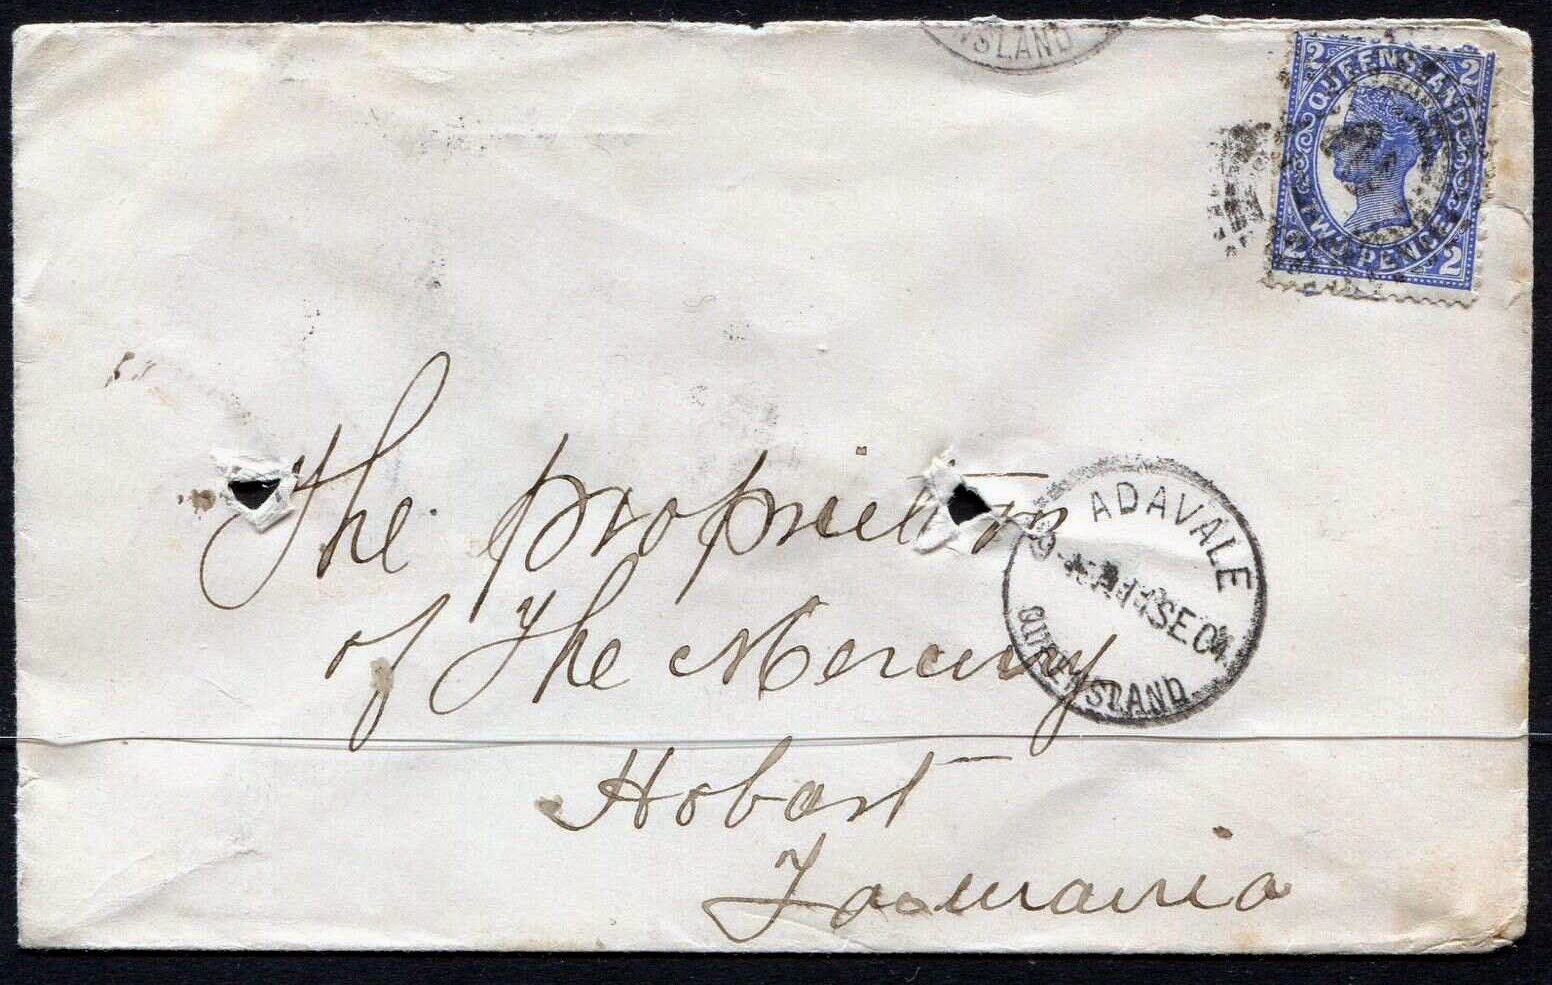 NSLAND
2 2
QUEENSLAND
TWO PENCE
2 2
The proprietor
of The Mercury
Hobart
Tasmania
ADAVALE
SE 04
QUEENSLAND